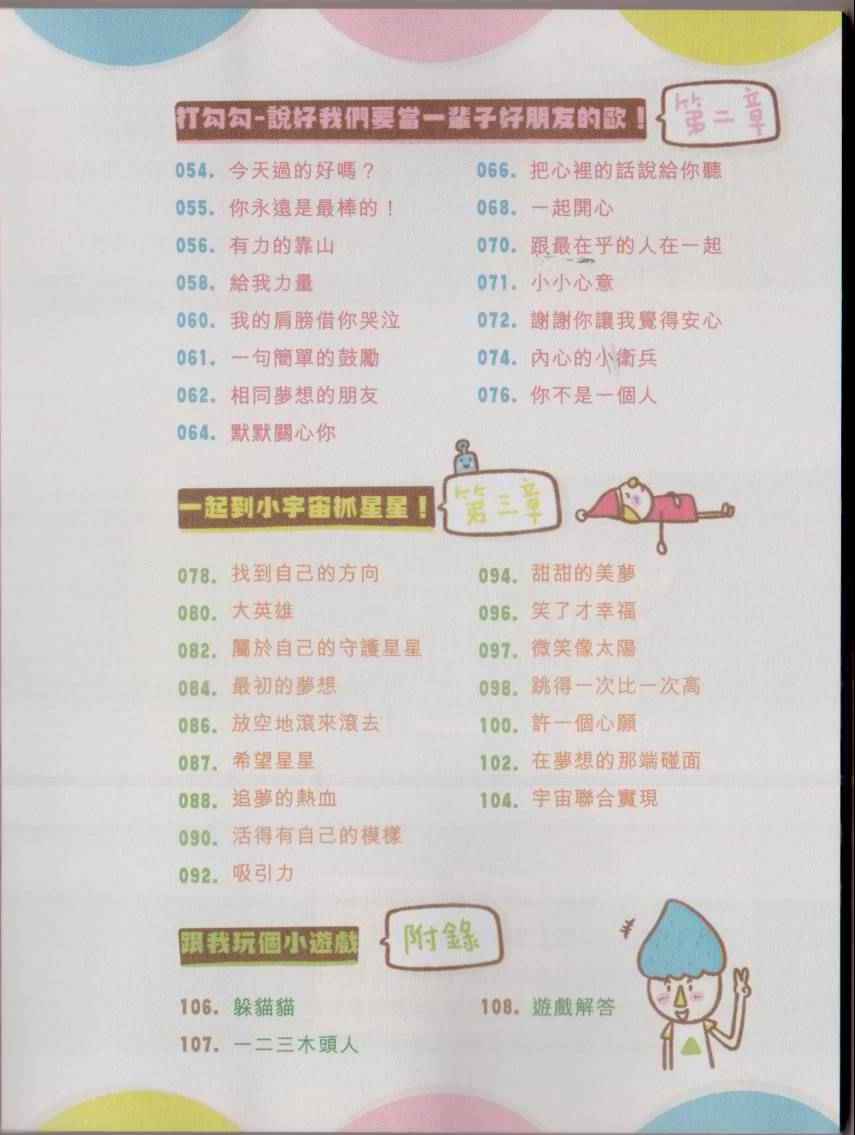 打勾勾-說好我們要當一輩子好朋友的歐！
第二章
054. 今天過的好嗎？
055. 你永遠是最棒的！
056. 有力的靠山
058. 給我力量
060. 我的肩膀借你哭泣
061. 一句簡單的鼓勵
062. 相同夢想的朋友
064. 默默關心你
066. 把心裡的話說給你聽
068. 一起開心
070. 跟最在乎的人在一起
071. 小小心意
072. 謝謝你讓我覺得安心
074. 內心的小衛兵
076. 你不是一個人
一起到小宇宙抓星星！
第三章
078. 找到自己的方向
080. 大英雄
082. 屬於自己的守護星星
084. 最初的夢想
086. 放空地滾來滾去
087. 希望星星
088. 追夢的熱血
090. 活得有自己的模樣
092. 吸引力
094. 甜甜的美夢
096. 笑了才幸福
097. 微笑像太陽
098. 跳得一次比一次高
100. 許一個心願
102. 在夢想的那端碰面
104. 宇宙聯合實現
跟我玩個小遊戲
附錄
106. 躲貓貓
107. 一二三木頭人
108. 遊戲解答